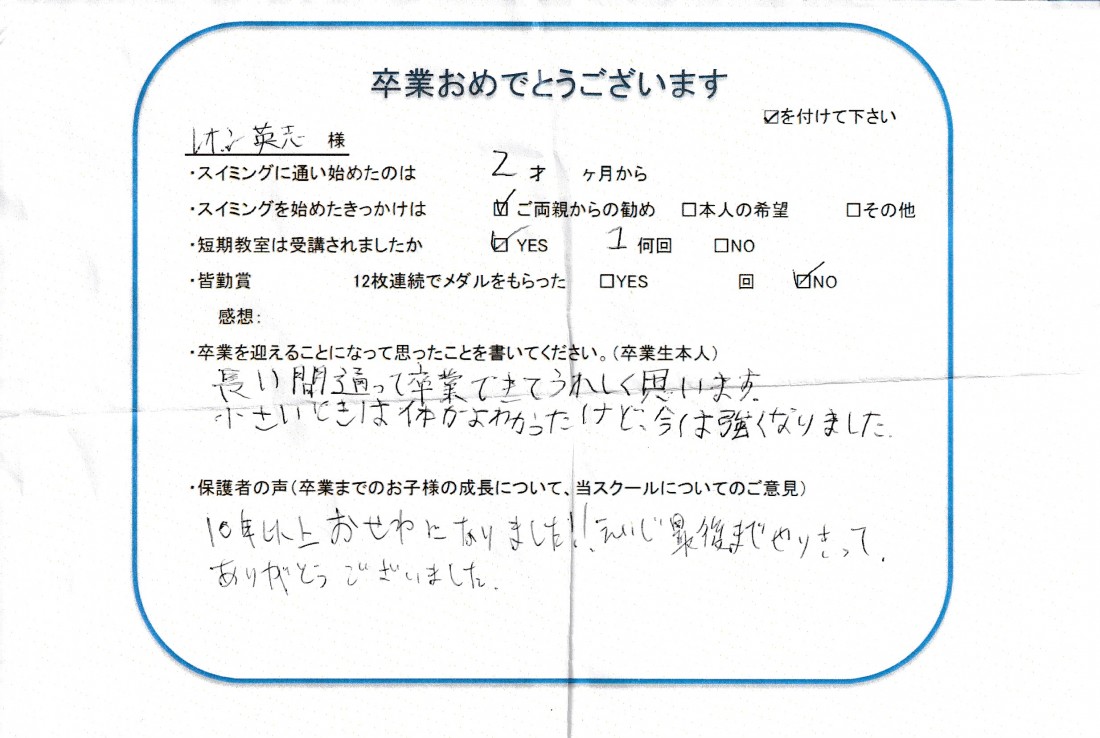 卒業おめでとうございます
☑を付けて下さい
レオン 英志 様
・スイミングに通い始めたのは 2 才 ヶ月から
・スイミングを始めたきっかけは ☑ご両親からの勧め □本人の希望 □その他
・短期教室は受講されましたか ☑YES 1 何回 □NO
・皆勤賞 12枚連続でメダルをもらった □YES 回 ☑NO
感想:
・卒業を迎えることになって思ったことを書いてください。(卒業生本人)
長い間通って卒業できてうれしく思います。
小さいときは体がよわかったけど、今は強くなりました。
・保護者の声(卒業までのお子様の成長について、当スクールについてのご意見)
10年以上おせわになりました!!えいじ最後までやりきって、
ありがとうございました。